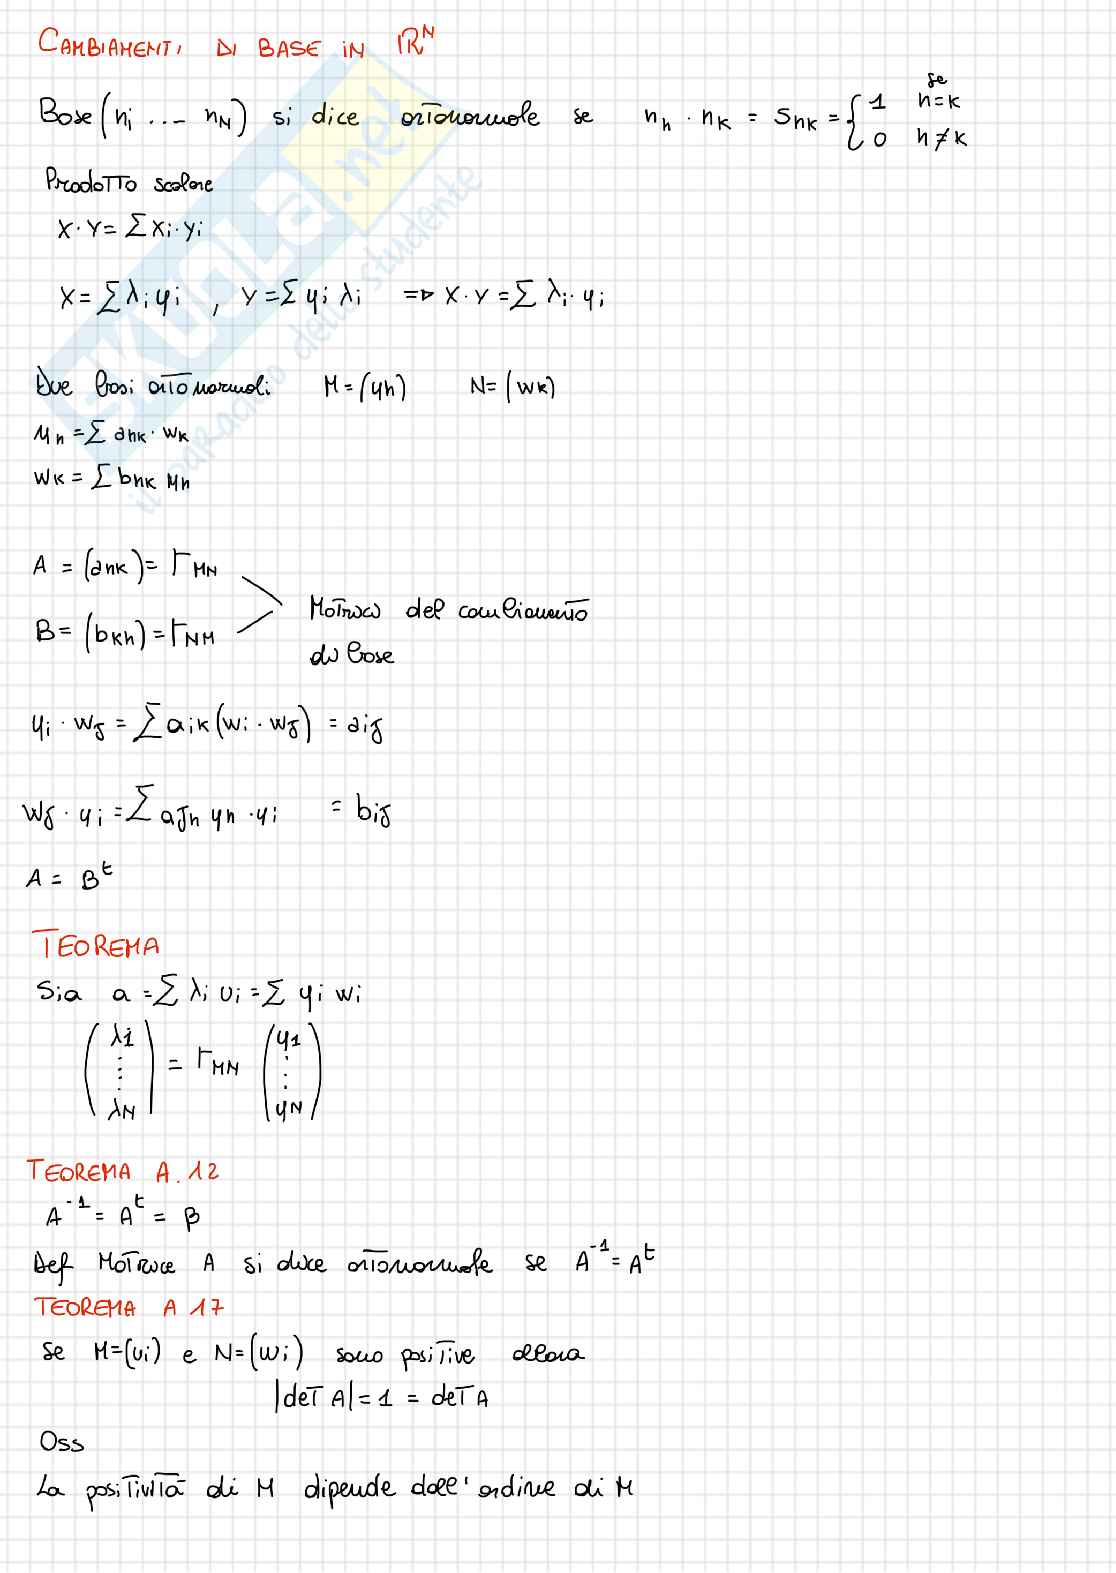 CAMBIAMENTI DI BASE IN ℝᴺ
Base (n₁ ... n_N) si dice ortonormale se n_h · n_k = S_hk = { 1 se h=k
0 h≠k
Prodotto scalare
X·Y = ∑ xi·yi
X = ∑ λi yi , Y = ∑ yi λi => X·Y = ∑ λi·yi
Due basi ortonormali M=(yh) N=(wk)
μh = ∑ ahk·wk
wk = ∑ bhk μh
A = (ahk) = Γ_MN
B = (bkh) = Γ_NM
Matrici del cambiamento
di base
yi · wj = ∑ aik (wi · wj) = aij
wj · yi = ∑ ajh yh · yi = bij
A = Bᵗ
TEOREMA
Sia a = ∑ λi υi = ∑ yi wi
(λ1 ... λN) = Γ_MN (y1 ... yN)
TEOREMA A.12
A⁻¹ = Aᵗ = B
Def Matrice A si dice ortonormale se A⁻¹ = Aᵗ
TEOREMA A 17
Se M=(υi) e N=(wi) sono positive allora
|det A| = 1 = det A
Oss
La positività di M dipende dall'ordine di M
SKUOLA.net
il paradiso dello studente